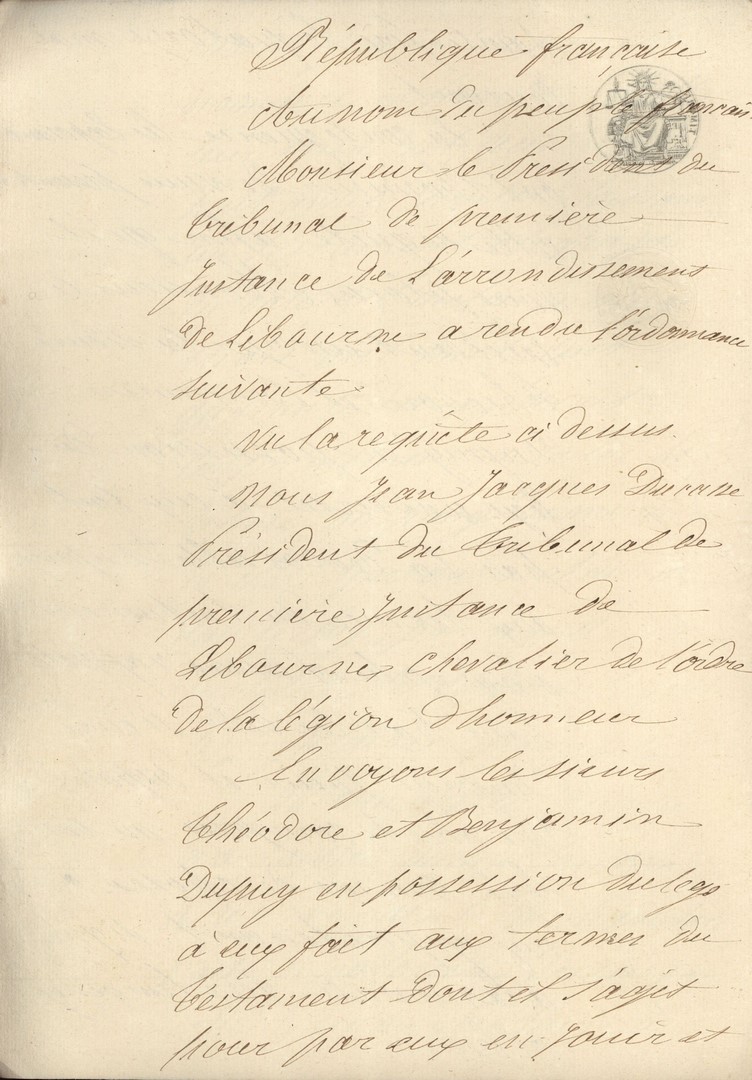 République française
Au nom du peuple français.
Monsieur le Président du
tribunal de première
Instance de L'arrondissement
de Libourne a rendu l'ordonnance
suivante.
Vu la requête ci dessus.
nous Jean Jacques Ducasse
Président du tribunal de
première Instance de
Libourne, chevalier de l'ordre
de la légion d'honneur
Envoyons les sieurs
Théodore et Benjamin
Dupuy en possession du legs
à eux fait aux termes du
testament dont il s'agit
pour par eux en jouir et